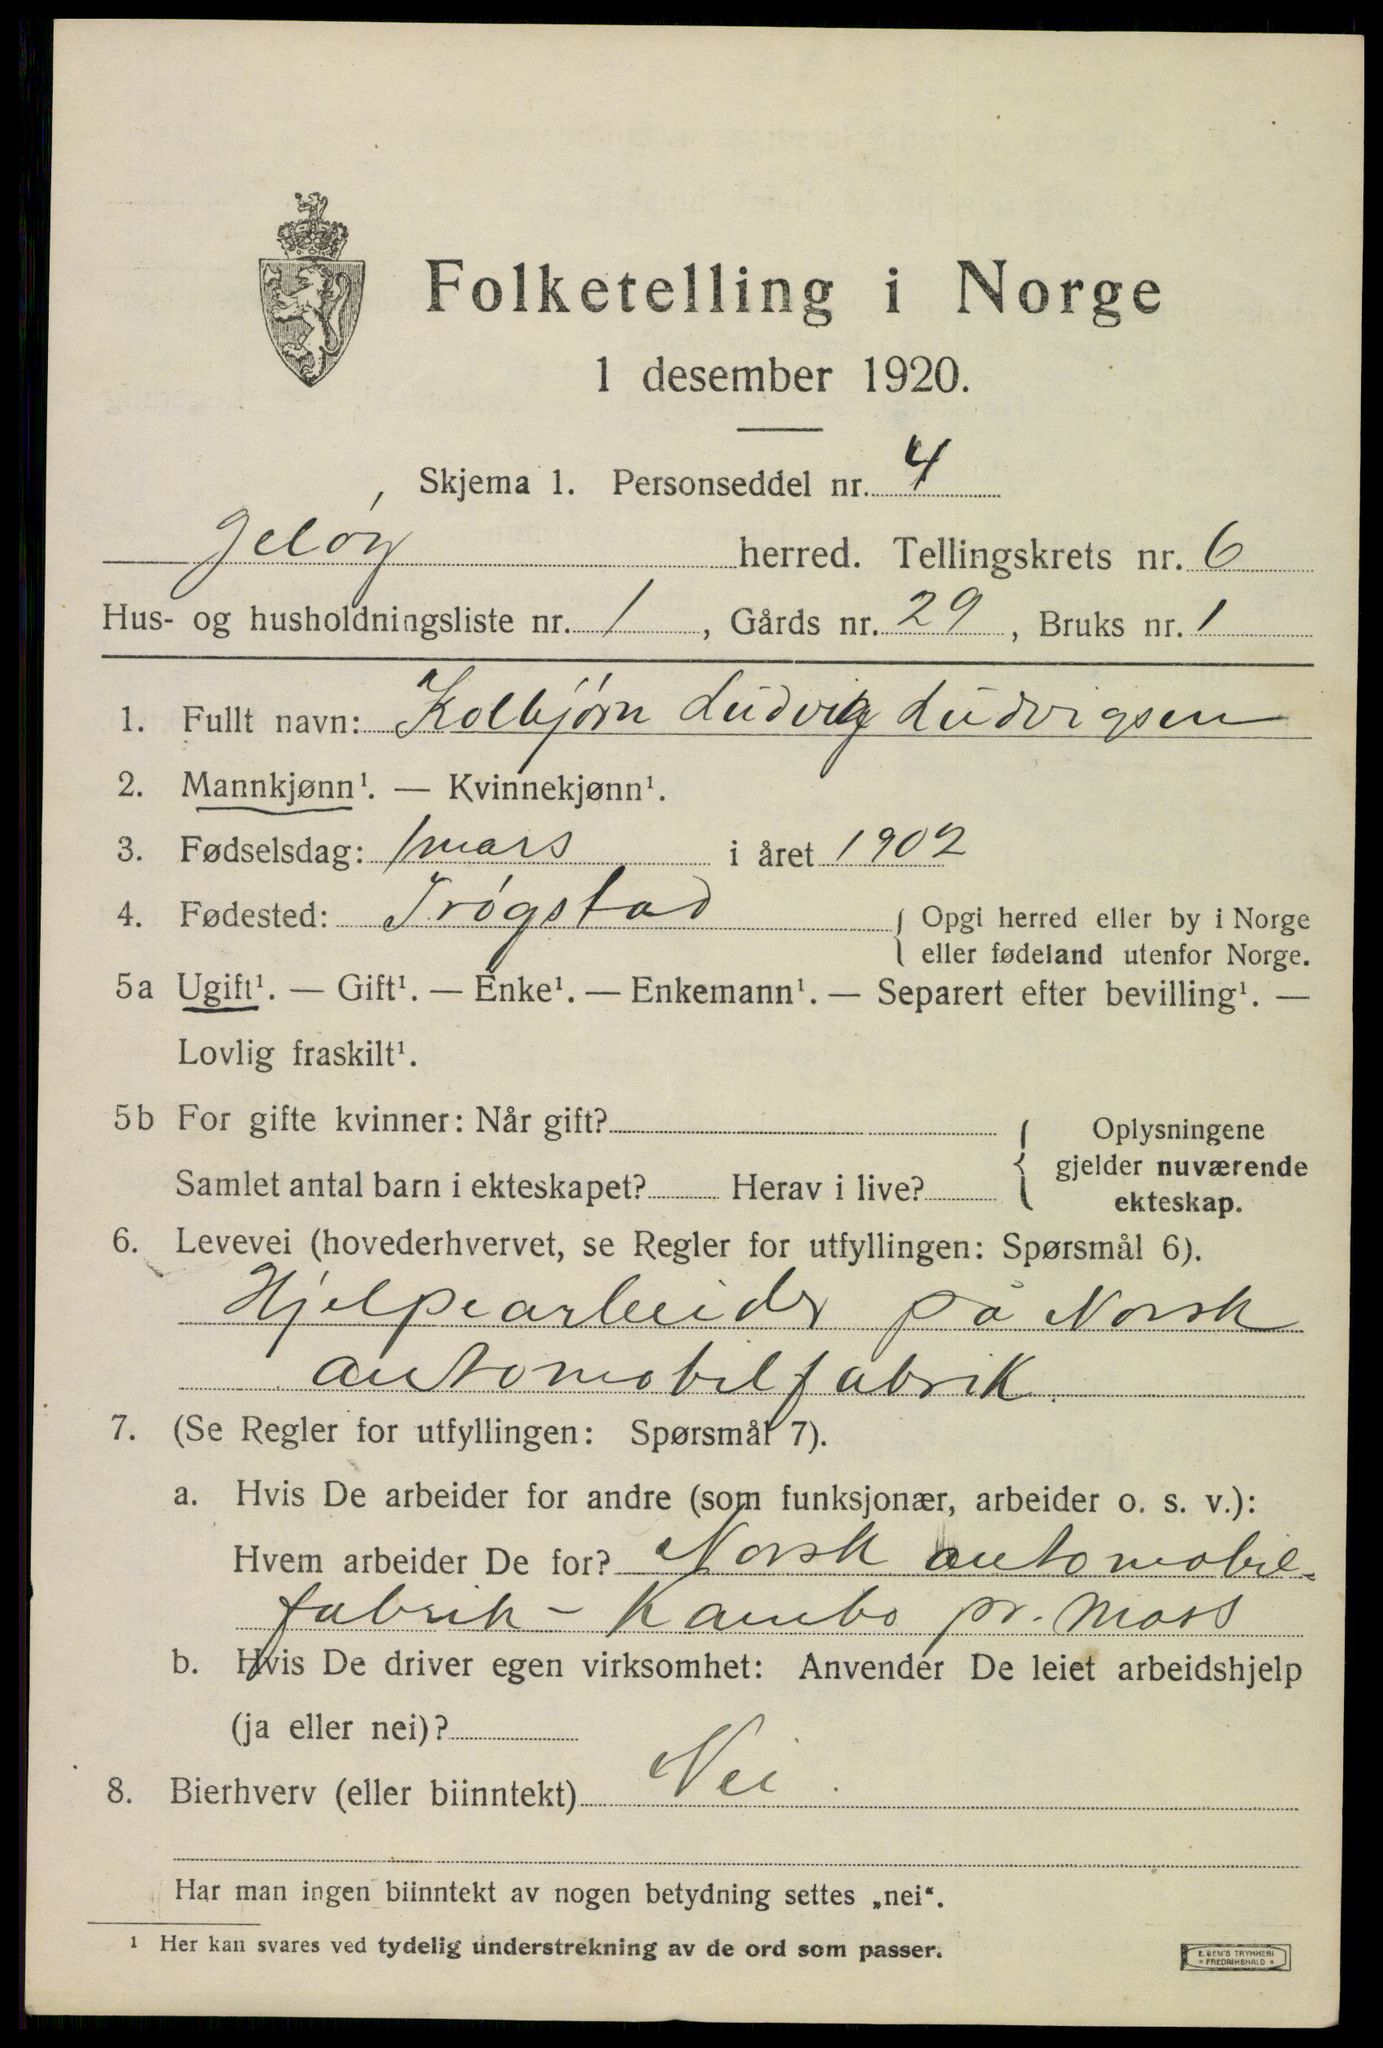 Folketelling i Norge
1 desember 1920.
Skjema 1. Personseddel nr. 4
Jeløy herred. Tellingskrets nr. 6
Hus- og husholdningsliste nr. 1, Gårds nr. 29, Bruks nr. 1
1. Fullt navn: Kolbjørn Ludvig Ludvigsen
2. Mannkjønn¹. — Kvinnekjønn¹.
3. Fødselsdag: 1 mars i året 1902
4. Fødested: Trøgstad { Opgi herred eller by i Norge
eller fødeland utenfor Norge.
5a Ugift¹. — Gift¹. — Enke¹. — Enkemann¹. — Separert efter bevilling¹. —
Lovlig fraskilt¹.
5b For gifte kvinner: Når gift?
Samlet antal barn i ekteskapet? Herav i live?
{ Oplysningene
gjelder nuværende
ekteskap.
6. Levevei (hovederhvervet, se Regler for utfyllingen: Spørsmål 6).
Hjelpearbeider på Norsk
automobilfabrik.
7. (Se Regler for utfyllingen: Spørsmål 7).
a. Hvis De arbeider for andre (som funksjonær, arbeider o. s. v.):
Hvem arbeider De for? Norsk automobil-
fabrik - Kambo pr. Moss
b. Hvis De driver egen virksomhet: Anvender De leiet arbeidshjelp
(ja eller nei)?
8. Bierhverv (eller biinntekt) Nei.
Har man ingen biinntekt av nogen betydning settes „nei“.
¹ Her kan svares ved tydelig understrekning av de ord som passer.
E. SEM'S TRYKKERI
* FREDRIKSHALD *